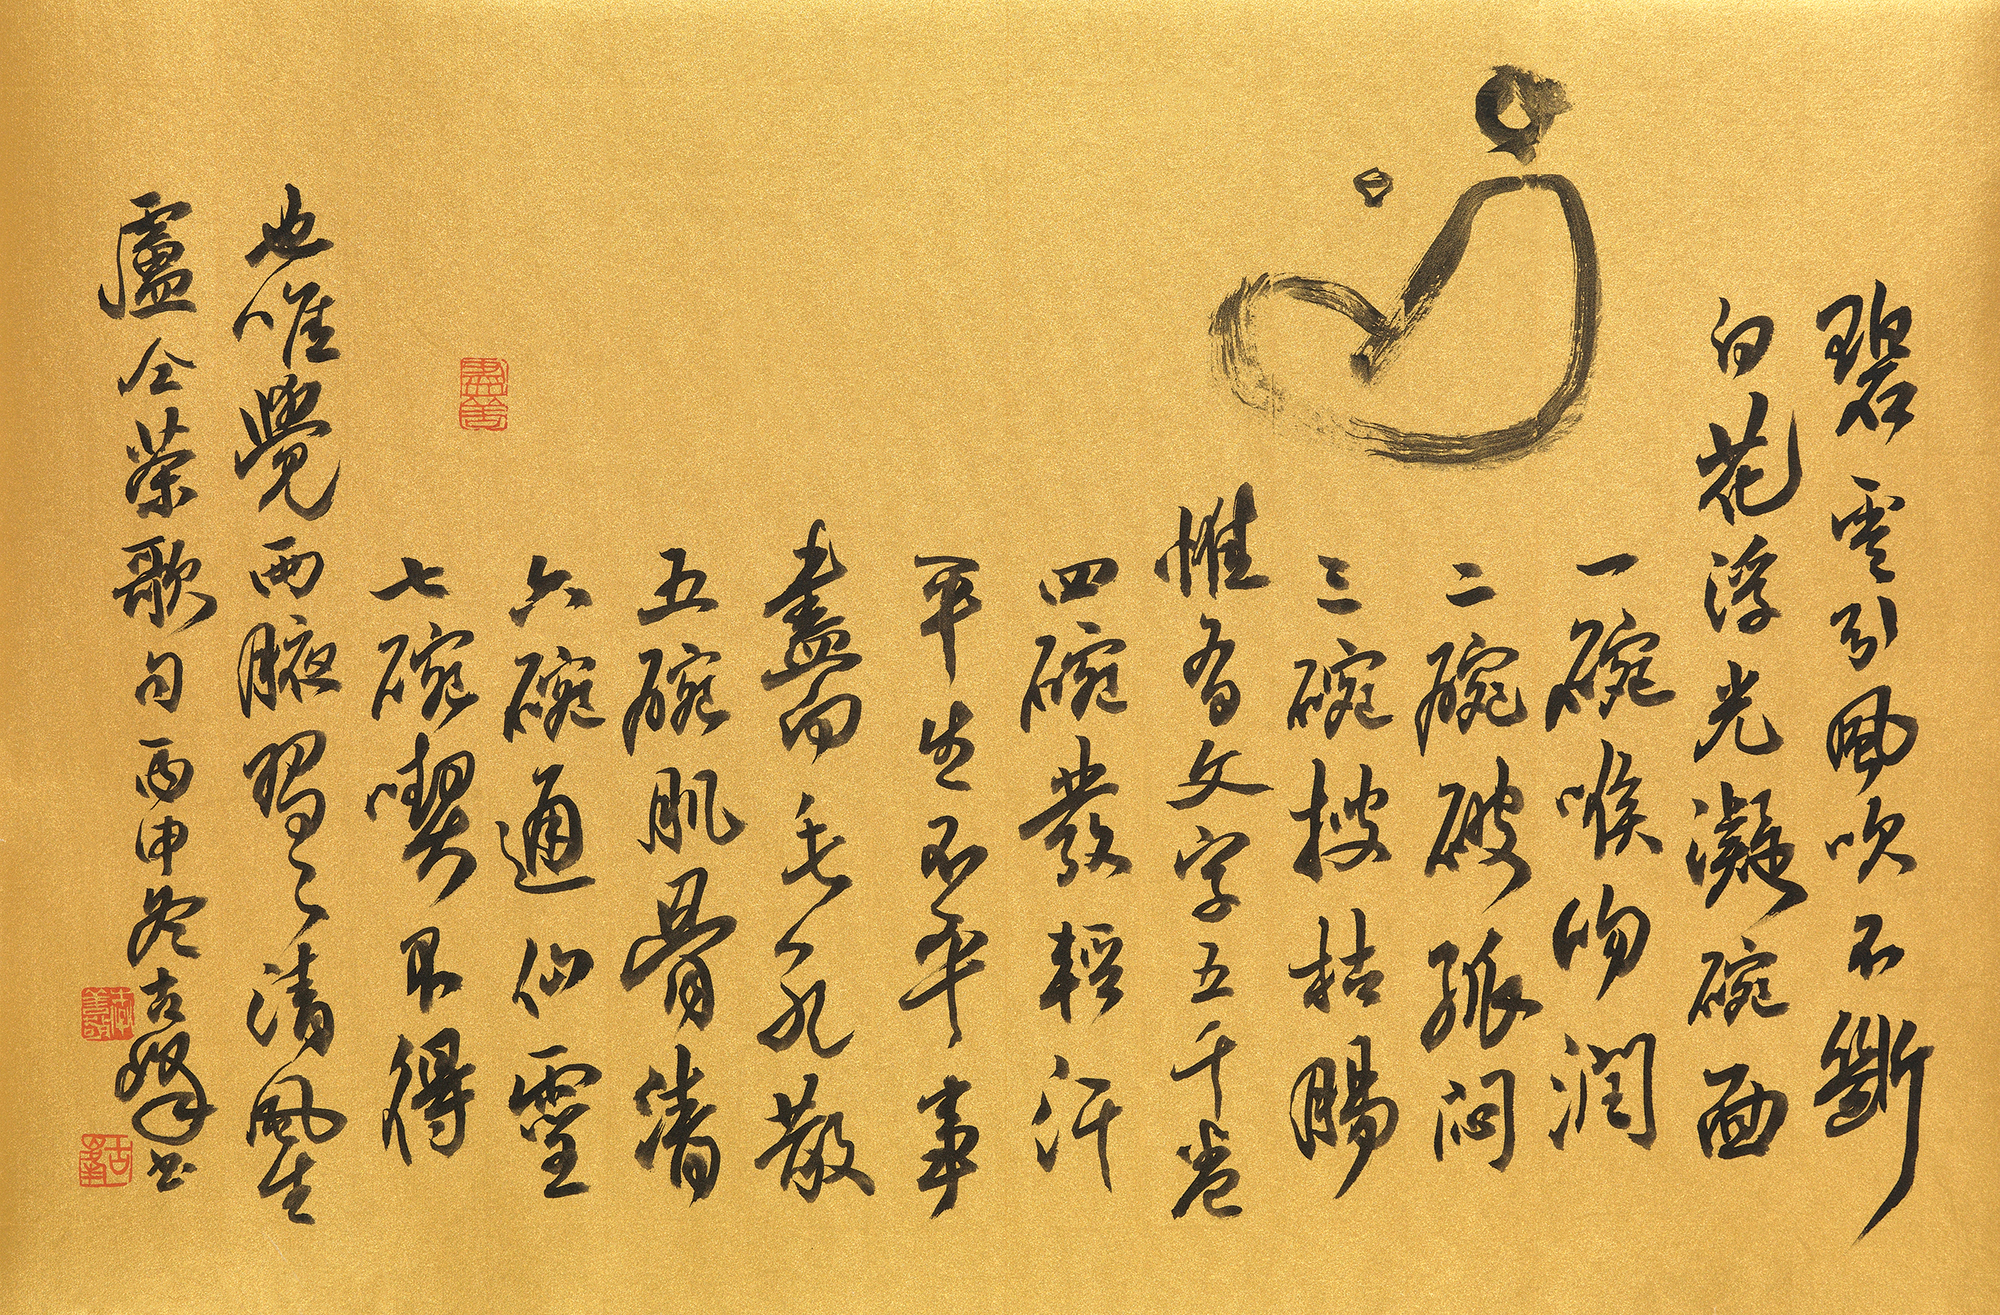 碧雲引風吹不斷
白花浮光凝碗面
一碗喉吻潤
二碗破孤悶
三碗搜枯腸
惟有文字五千卷
四碗發輕汗
平生不平事
盡向毛孔散
五碗肌骨清
六碗通仙靈
七碗喫不得
也唯覺兩腋習〻清風生
盧仝茶歌句 丙申冬古峰書